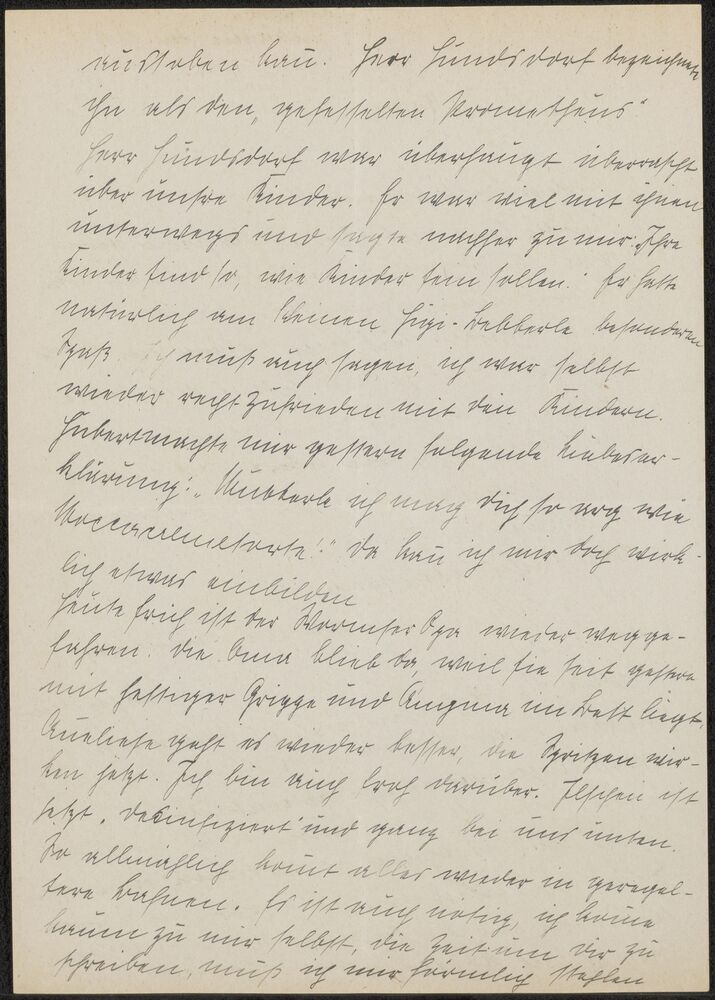 austoben kann. Herr Hundsdorf bezeichnete
ihn als den „gefesselten Prometheus"
Herr Hundsdorf war überhaupt überrascht
über unsre Kinder. Er war viel mit ihnen
unterwegs und sagte nachher zu mir: „Ihre
Kinder sind so, wie Kinder sein sollen." Er hatte
natürlich am kleinen besonderen
Spaß. Ich muß auch sagen, ich war selbst
wieder recht zufrieden mit den Kindern.
Hubert machte mir gestern folgende Liebeser-
klärung: „Mutterle ich mag dich so arg wie
Moccacremetorte!" Da kann ich mir doch wirk-
lich etwas einbilden
Heute früh ist der Wormser Opa wieder wegge-
fahren. Die Oma blieb da, weil sie seit gestern
mit heftiger Grippe und Angina im Bett liegt.
Anneliese geht es wieder besser, die Spritzen wir-
ken jetzt. Ich bin auch froh darüber. Ilschen ist
jetzt „desinfiziert" und ganz bei uns unten.
So allmählich kommt alles wieder in geregel-
tere Bahnen. Es ist auch nötig, ich komme
kaum zu mir selbst, die Zeit um dir zu
schreiben, muß ich mir förmlich stehlen